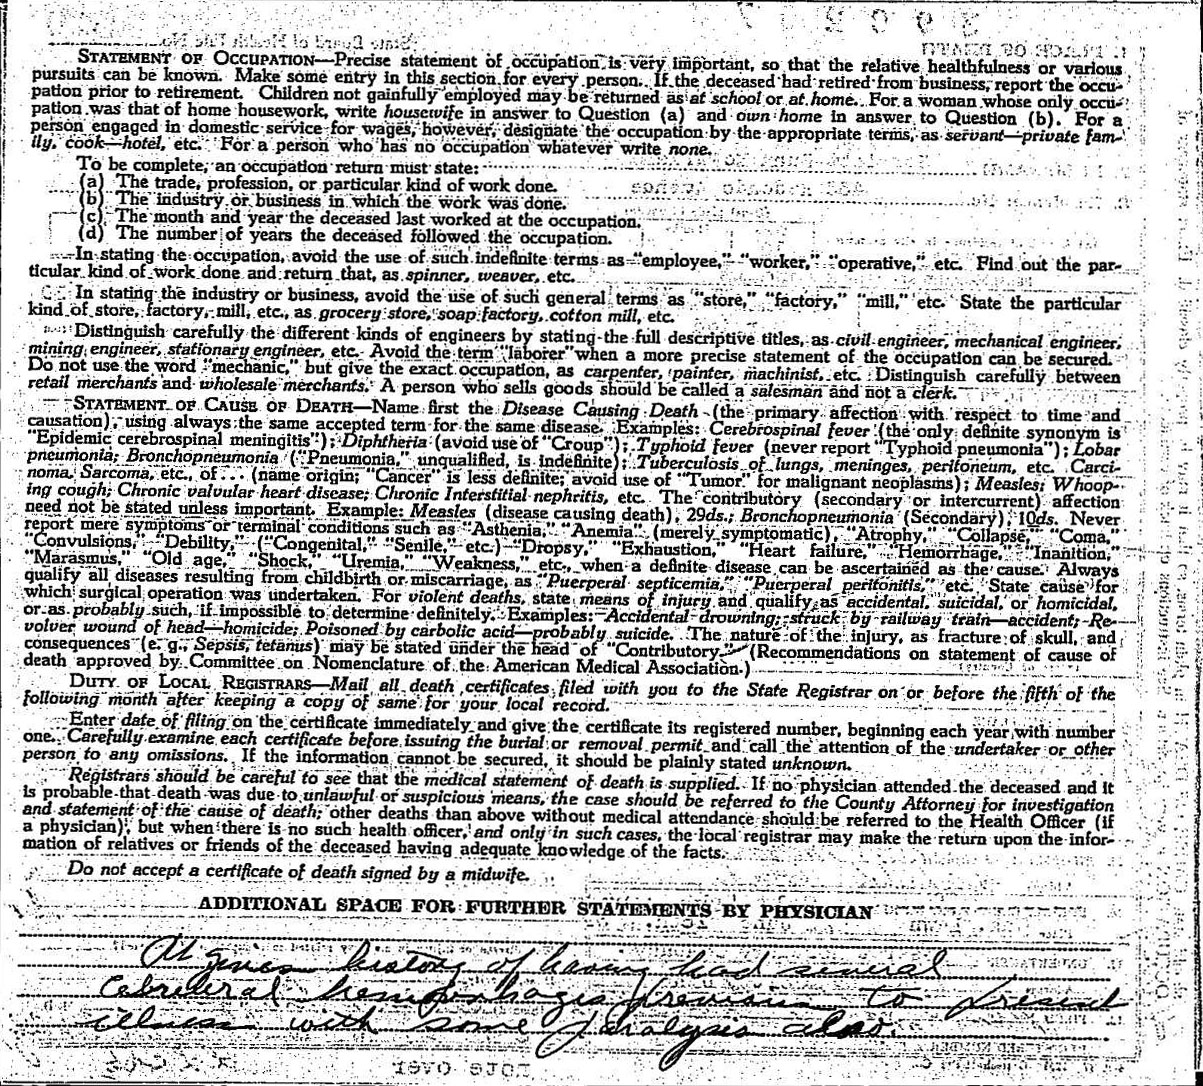 STATEMENT OF OCCUPATION—Precise statement of occupation is very important, so that the relative healthfulness or various
pursuits can be known. Make some entry in this section for every person. If the deceased had retired from business, report the occu-
pation prior to retirement. Children not gainfully employed may be returned as at school or at home. For a woman whose only occu-
pation was that of home housework, write housewife in answer to Question (a) and own home in answer to Question (b). For a
person engaged in domestic service for wages, however, designate the occupation by the appropriate terms, as servant—private fam-
ily, cook—hotel, etc. For a person who has no occupation whatever write none.
To be complete, an occupation return must state:
(a) The trade, profession, or particular kind of work done.
(b) The industry or business in which the work was done.
(c) The month and year the deceased last worked at the occupation.
(d) The number of years the deceased followed the occupation.
In stating the occupation, avoid the use of such indefinite terms as "employee," "worker," "operative," etc. Find out the par-
ticular kind of work done and return that, as spinner, weaver, etc.
In stating the industry or business, avoid the use of such general terms as "store," "factory," "mill," etc. State the particular
kind of store, factory, mill, etc., as grocery store, soap factory, cotton mill, etc.
Distinguish carefully the different kinds of engineers by stating the full descriptive titles, as civil engineer, mechanical engineer,
mining engineer, stationary engineer, etc. Avoid the term "laborer" when a more precise statement of the occupation can be secured.
Do not use the word "mechanic," but give the exact occupation, as carpenter, painter, machinist, etc. Distinguish carefully between
retail merchants and wholesale merchants. A person who sells goods should be called a salesman and not a clerk.
STATEMENT OF CAUSE OF DEATH—Name first the Disease Causing Death (the primary affection with respect to time and
causation), using always the same accepted term for the same disease. Examples: Cerebrospinal fever (the only definite synonym is
"Epidemic cerebrospinal meningitis"); Diphtheria (avoid use of "Croup"); Typhoid fever (never report "Typhoid pneumonia"); Lobar
pneumonia; Bronchopneumonia ("Pneumonia," unqualified, is indefinite); Tuberculosis of lungs, meninges, peritoneum, etc. Carci-
noma, Sarcoma, etc., of... (name origin; "Cancer" is less definite; avoid use of "Tumor" for malignant neoplasms); Measles; Whoop-
ing cough; Chronic valvular heart disease; Chronic Interstitial nephritis, etc. The contributory (secondary or intercurrent) affection
need not be stated unless important. Example: Measles (disease causing death), 29ds.; Bronchopneumonia (Secondary), 10ds. Never
report mere symptoms or terminal conditions such as "Asthenia," "Anemia" (merely symptomatic), "Atrophy," "Collapse," "Coma,"
"Convulsions," "Debility," ("Congenital," "Senile," etc.) "Dropsy," "Exhaustion," "Heart failure," "Hemorrhage," "Inanition,"
"Marasmus," "Old age," "Shock," "Uremia," "Weakness," etc., when a definite disease can be ascertained as the cause. Always
qualify all diseases resulting from childbirth or miscarriage, as "Puerperal septicemia," "Puerperal peritonitis," etc. State cause for
which surgical operation was undertaken. For violent deaths, state means of injury and qualify as accidental, suicidal, or homicidal,
or as probably such, if impossible to determine definitely. Examples: Accidental drowning; struck by railway train—accident; Re-
volver wound of head—homicide; Poisoned by carbolic acid—probably suicide. The nature of the injury, as fracture of skull, and
consequences (e. g., Sepsis, tetanus) may be stated under the head of "Contributory." (Recommendations on statement of cause of
death approved by Committee on Nomenclature of the American Medical Association.)
DUTY OF LOCAL REGISTRARS—Mail all death certificates filed with you to the State Registrar on or before the fifth of the
following month after keeping a copy of same for your local record.
Enter date of filing on the certificate immediately and give the certificate its registered number, beginning each year with number
one. Carefully examine each certificate before issuing the burial or removal permit and call the attention of the undertaker or other
person to any omissions. If the information cannot be secured, it should be plainly stated unknown.
Registrars should be careful to see that the medical statement of death is supplied. If no physician attended the deceased and it
is probable that death was due to unlawful or suspicious means, the case should be referred to the County Attorney for investigation
and statement of the cause of death; other deaths than above without medical attendance should be referred to the Health Officer (if
a physician), but when there is no such health officer, and only in such cases, the local registrar may make the return upon the infor-
mation of relatives or friends of the deceased having adequate knowledge of the facts.
Do not accept a certificate of death signed by a midwife.
ADDITIONAL SPACE FOR FURTHER STATEMENTS BY PHYSICIAN
Pt gives history of having had several
Cebreleral hemorrhages previous to present
illness with some paralysis also.